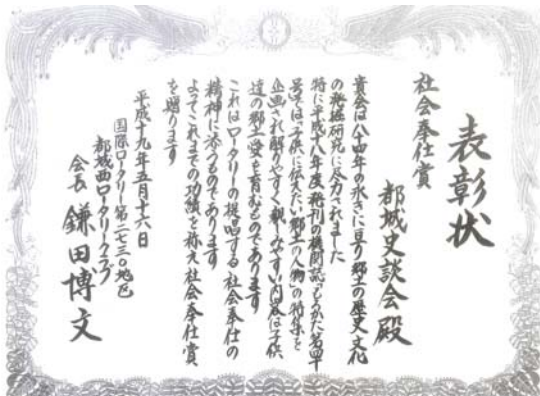 表彰状
社会奉仕賞
都城史談会殿
貴会は八十四年の永きに亘り郷土の歴史文化
の発掘研究に尽力されました
特に平成十八年度発刊の機関誌「もろかた」第四十
号では「子供に伝えたい郷土の人物」の特集を
企画され解りやすく親しみやすい内容は子供
達の郷土愛を育むものであります
これはロータリーの提唱する社会奉仕の
精神に添うものであります
よってこれまでの功績を称え社会奉仕賞
を贈ります
平成十九年五月十六日
国際ロータリー第二七三〇地区
都城西ロータリークラブ
会長 鎌田博文